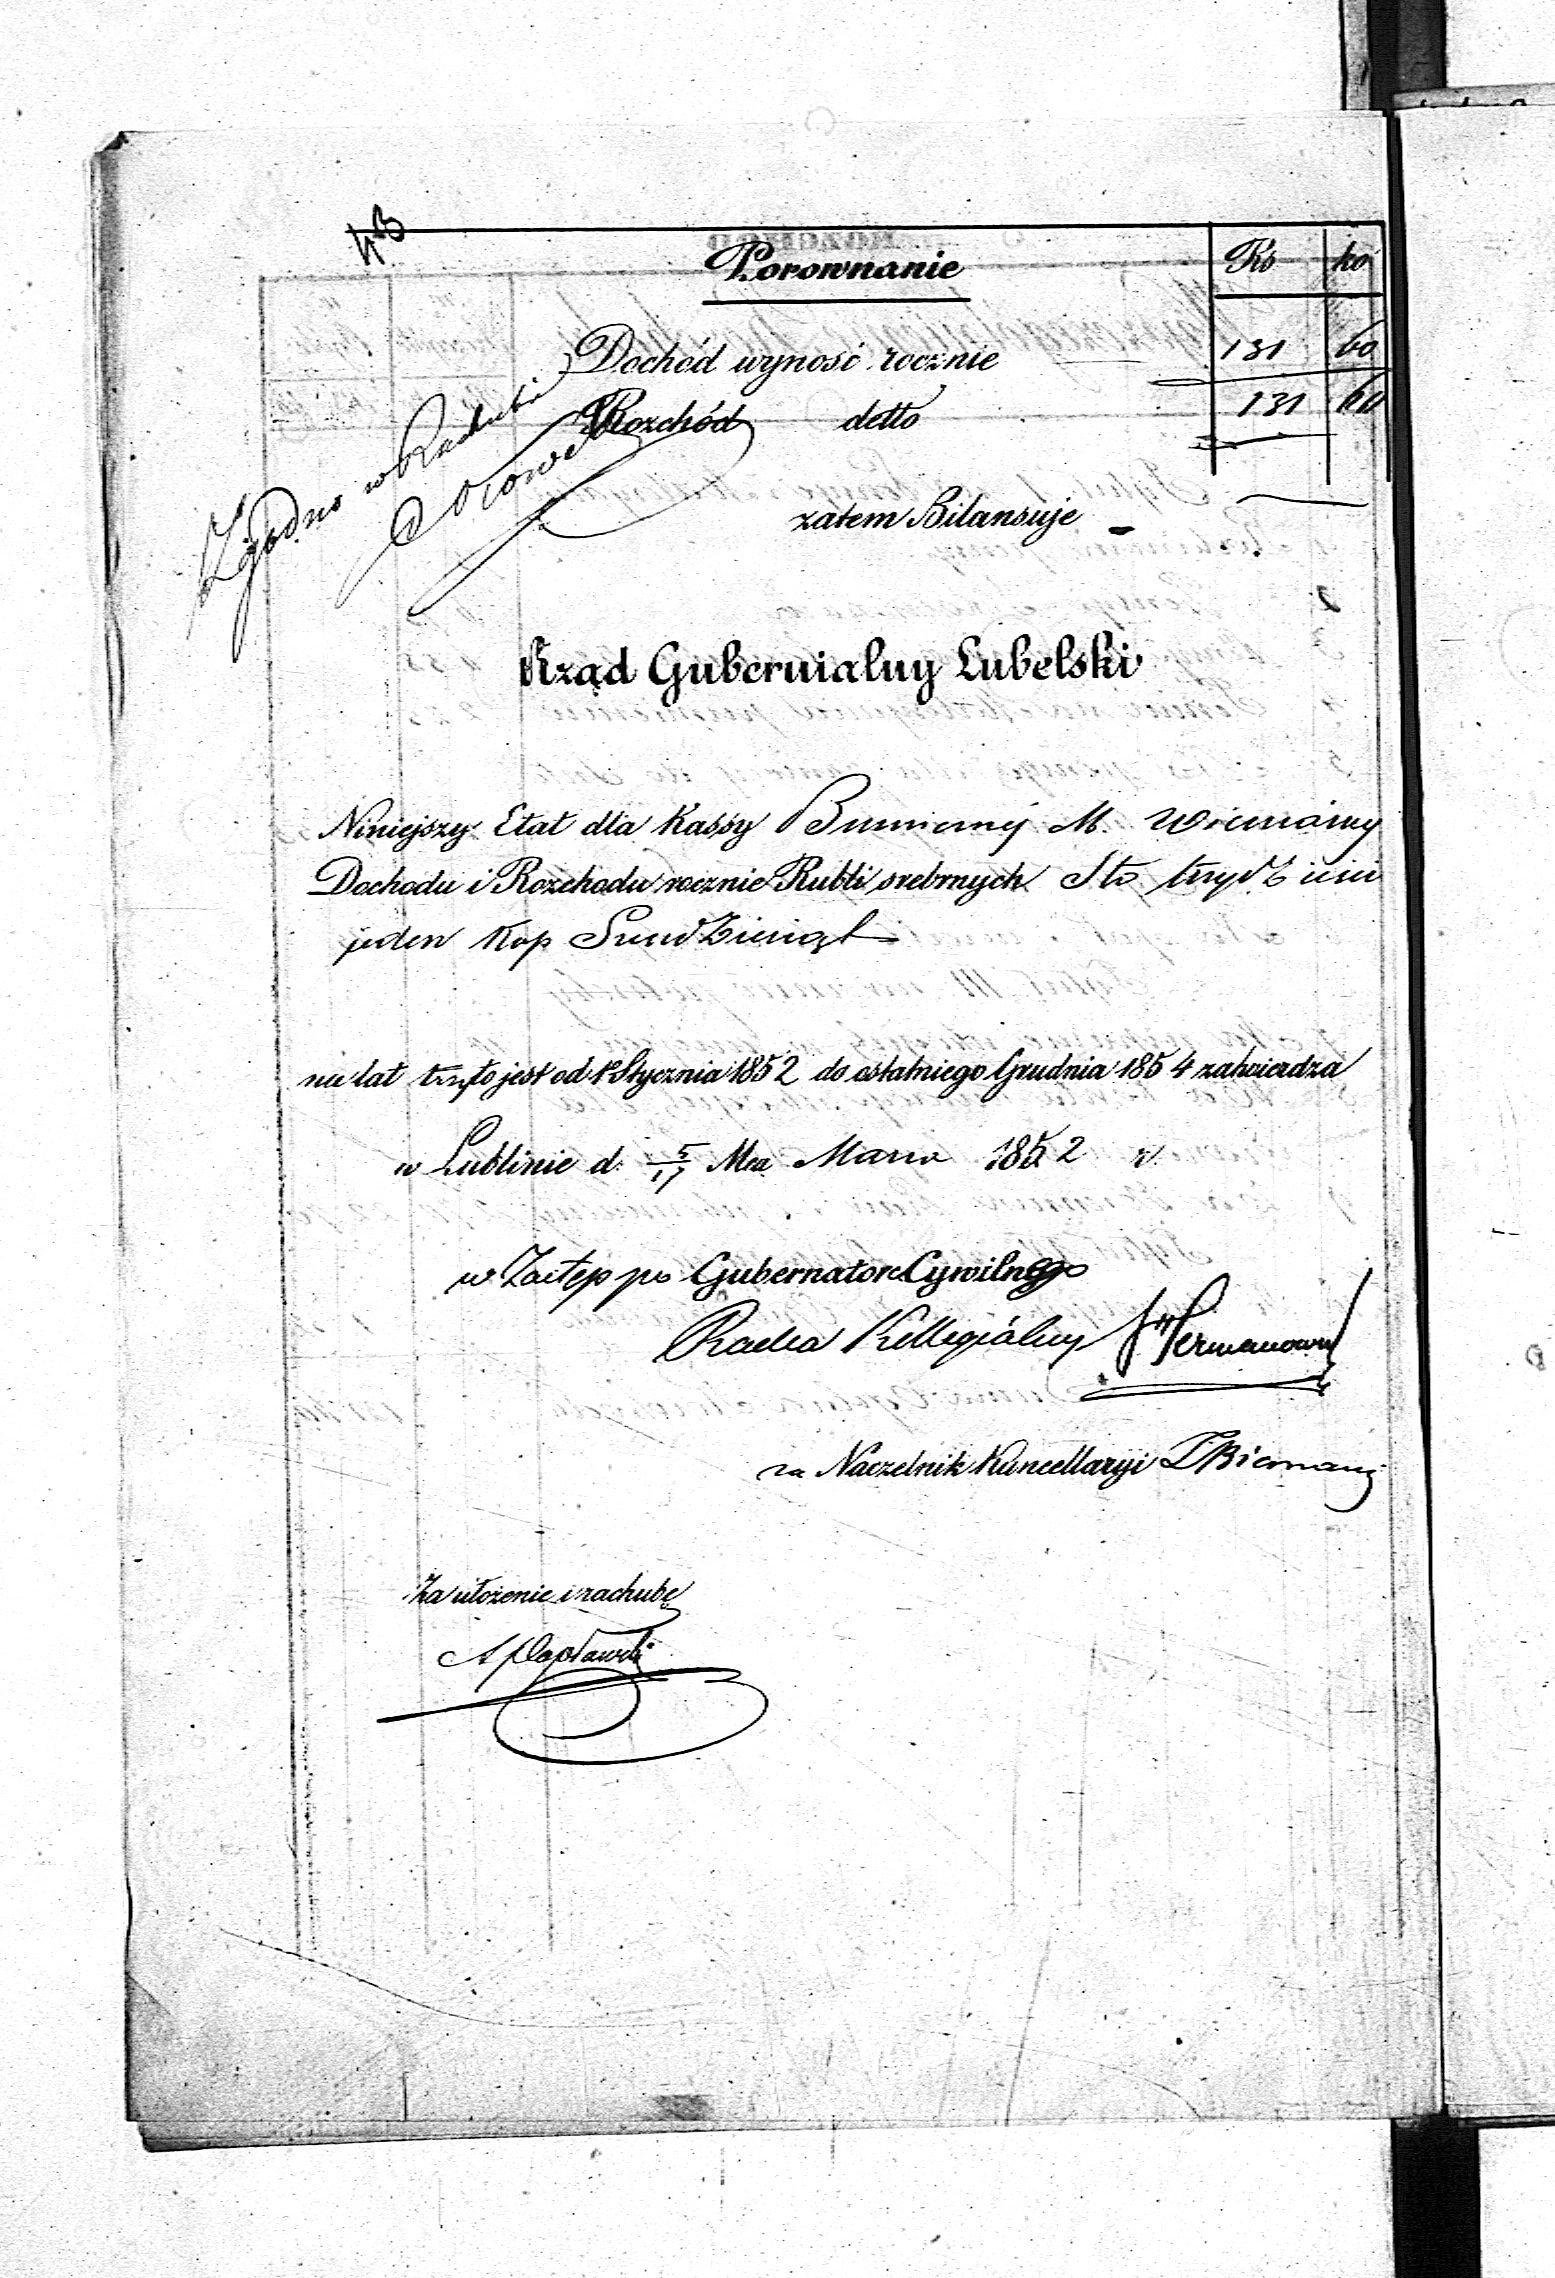 Porownanie Rs ko
Dochód wynosi rocznie 131 60
Rozchód detto 131 60
zatem Bilansuje
Zgodno w Rachubie
Rząd Gubernialny Lubelski
Niniejszy Etat dla Kassy M.
Dochodu i Rozchodu rocznie Rubli srebrnych Sto trzydzieści
jeden Kop Sześćdziesiąt
na lat trzy to jest od 1o Stycznia 1852 do ostatniego Grudnia 1854 zatwierdza
w Lublinie d. 5/17 Mca Marca 1852 r.
w Zastęp po Gubernatora Cywilnego
Radca Kollegialny
za Naczelnik Kancellaryi
Za ułożenie i rachubę